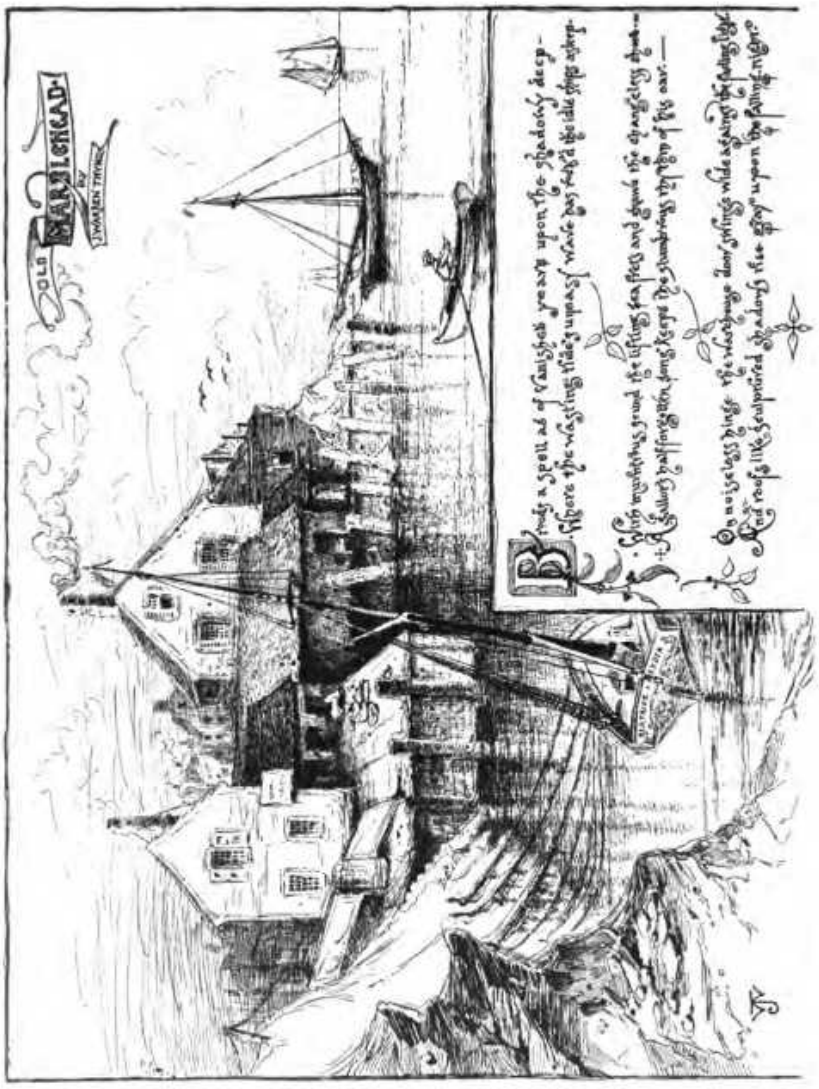 OLD
MARBLEHEAD.
BY
J. WARREN THYNG.
Broods a spell as of vanished years upon the shadowy deep-
Where the wasting tide's uneasy wave has rock'd the idle ships asleep.
With murmurous sound the lifting sea frets and gnaws the
A sailor's half forgotten song keeps the rhythm of his oar.—
On noiseless hinge the warehouse door swings wide against the fading light
And roofs like sculptured shadows rise gray upon the falling night.